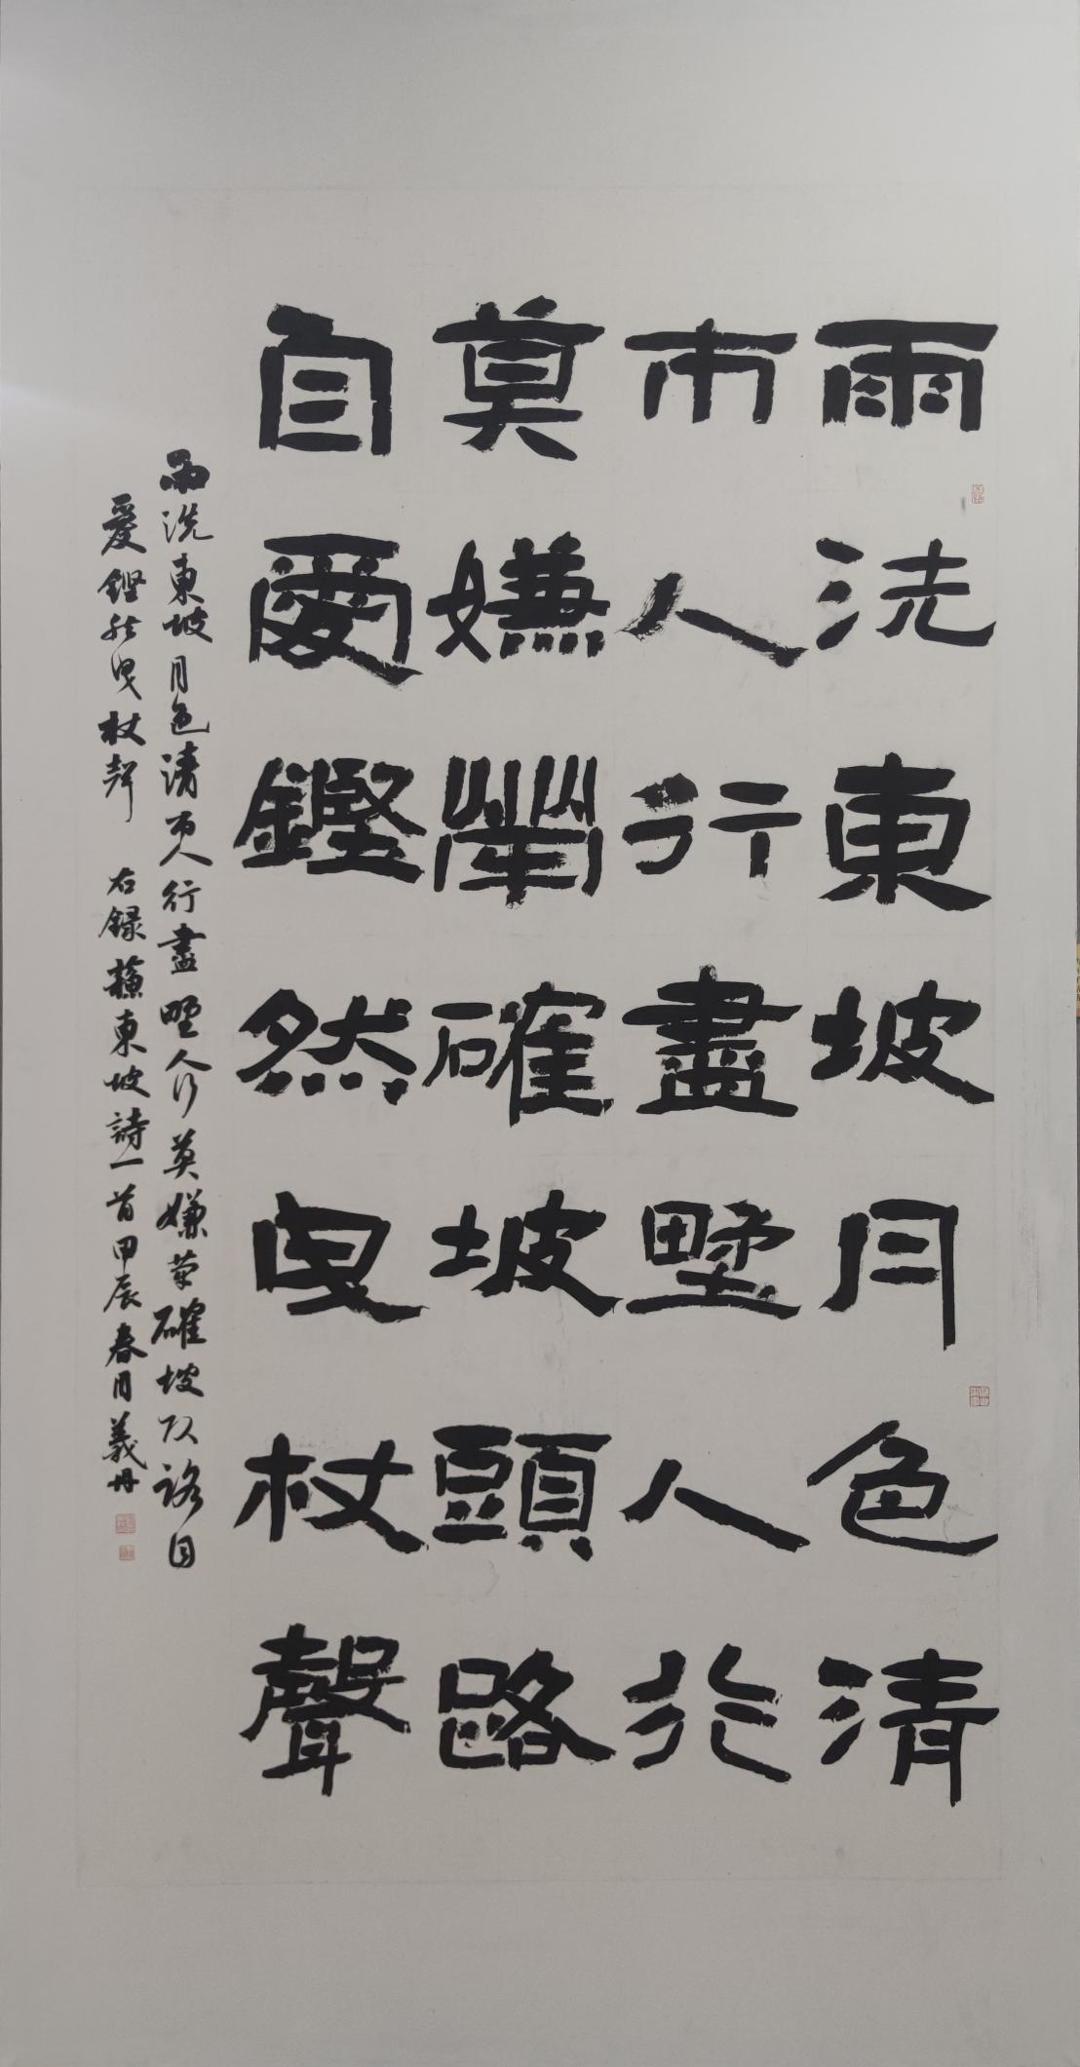 雨洗東坡月色清
市人行盡墅人行
莫嫌犖確坡頭路
自愛鏗然曳杖聲
雨洗東坡月色清市人行盡墅人行莫嫌犖確坡頭路自
愛鏗然曳杖聲 右錄蘇東坡詩一首甲辰春月義丹